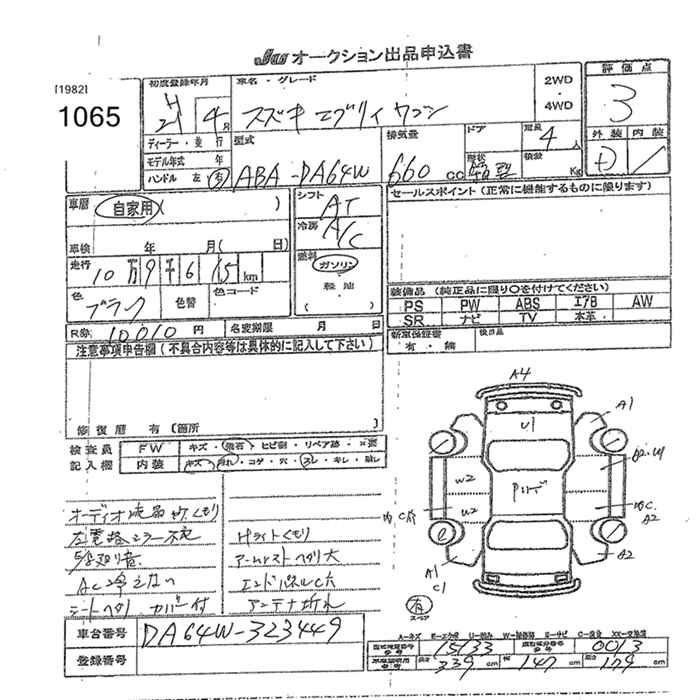 JU オークション出品申込書
[1982]
1065
初度登録年月
H21年 4月
車名・グレード
スズキ エブリィ ワゴン
2WD
・
4WD
評価点
3
外装 内装
D
ディーラー・並行
モデル年式 年
ハンドル 左 右
型式
ABA-DA64W
排気量
660 cc
ドア
形状
箱型
定員
4人
積載
Kg
車歴
自家用( )
車検 年 月( 日)
走行
10万9千6 15 km
色
ブラック
色替
色コード
シフト
AT
冷房
A/C
燃料
ガソリン
軽油
( )
セールスポイント(正常に機能するものに限ります)
装備品 (純正品に限り○を付けてください)
PS PW ABS エアB AW
SR ナビ TV 本革
新車保証書
有・無
後日品
R券 10010 円
名変期限 月 日
注意事項申告欄(不具合内容等は具体的に記入して下さい)
修復歴 有(箇所 )
検査員
記入欄
FW キズ・飛石・ヒビ割・リペア跡・要
内装 キズ・汚れ・コゲ・穴・スレ・キレ・破レ
オーディオ液晶 くもり
左電格ミラー不良
異音
AC冷えない
シートヘタリ カバー付
Hライトくもり
アームレストヘタリ大
エンドパネルC大
アンテナ折れ
A4
U1
A1
W2
W2
A1
C1
A2
A2
有
スペア
車台番号 DA64W-323449
登録番号
A-キズ
型式指定番号 15133
類別区分番号 0013
長さ 339 cm 幅 147 cm 高さ 179 cm